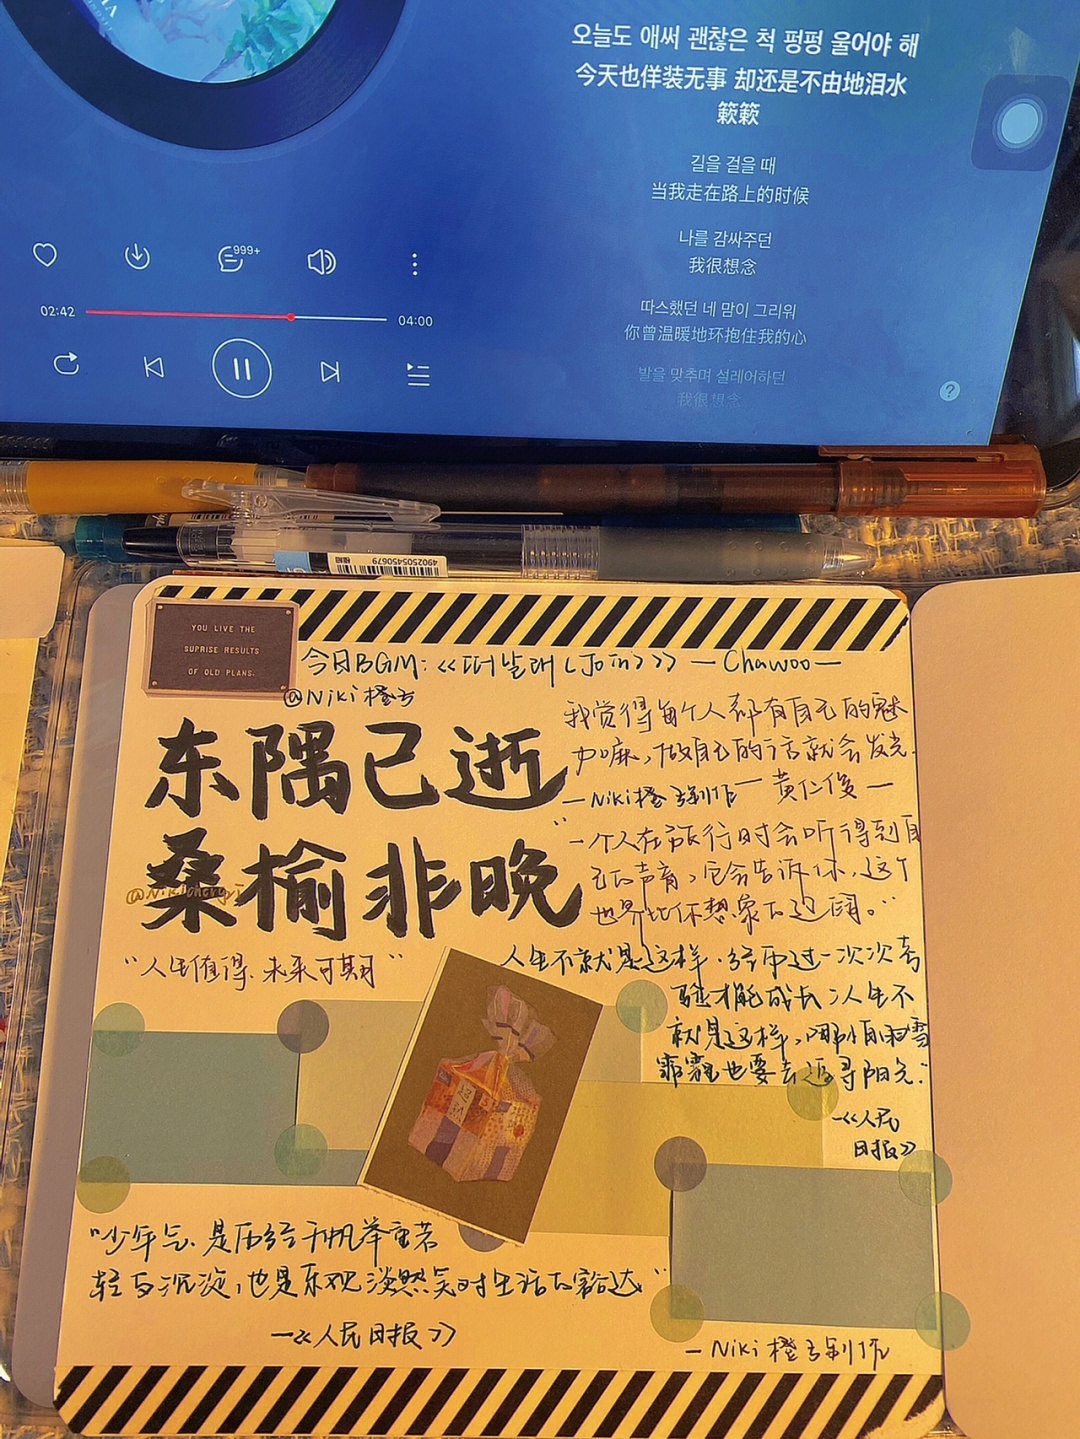 오늘도 애써 괜찮은 척 펑펑 울어야 해
今天也佯装无事 却还是不由地泪水
簌簌
길을 걸을 때
当我走在路上的时候
나를 감싸주던
我很想念
따스했던 네 맘이 그리워
你曾温暖地环抱住我的心
발을 맞추며 설레어하던
我很想念
999+
02:42
04:00
?
4902505450679
YOU LIVE THE
SUPRISE RESULTS
OF OLD PLANS.
今日BGM:
— Chawoo —
@Niki橙子
东隅已逝
桑榆非晚
我觉得每个人都有自己的魅
力嘛,做自己的话就会发光.
— 黄仁俊 —
—Niki橙子制作
"一个人在旅行时会听得到自
己的声音,它会告诉你,这个
世界比你想象的边阔。"
"人生值得.未来可期"
人生不就是这样.经历过一次次考
验才能成长;人生不
就是这样,哪怕雨雪
霏霏也要去追寻阳光."
—《人民
日报》
"少年气.是历经千帆举重若
轻的沉淀,也是乐观淡然笑对生活的豁达"
—《人民日报》
— Niki橙子制作